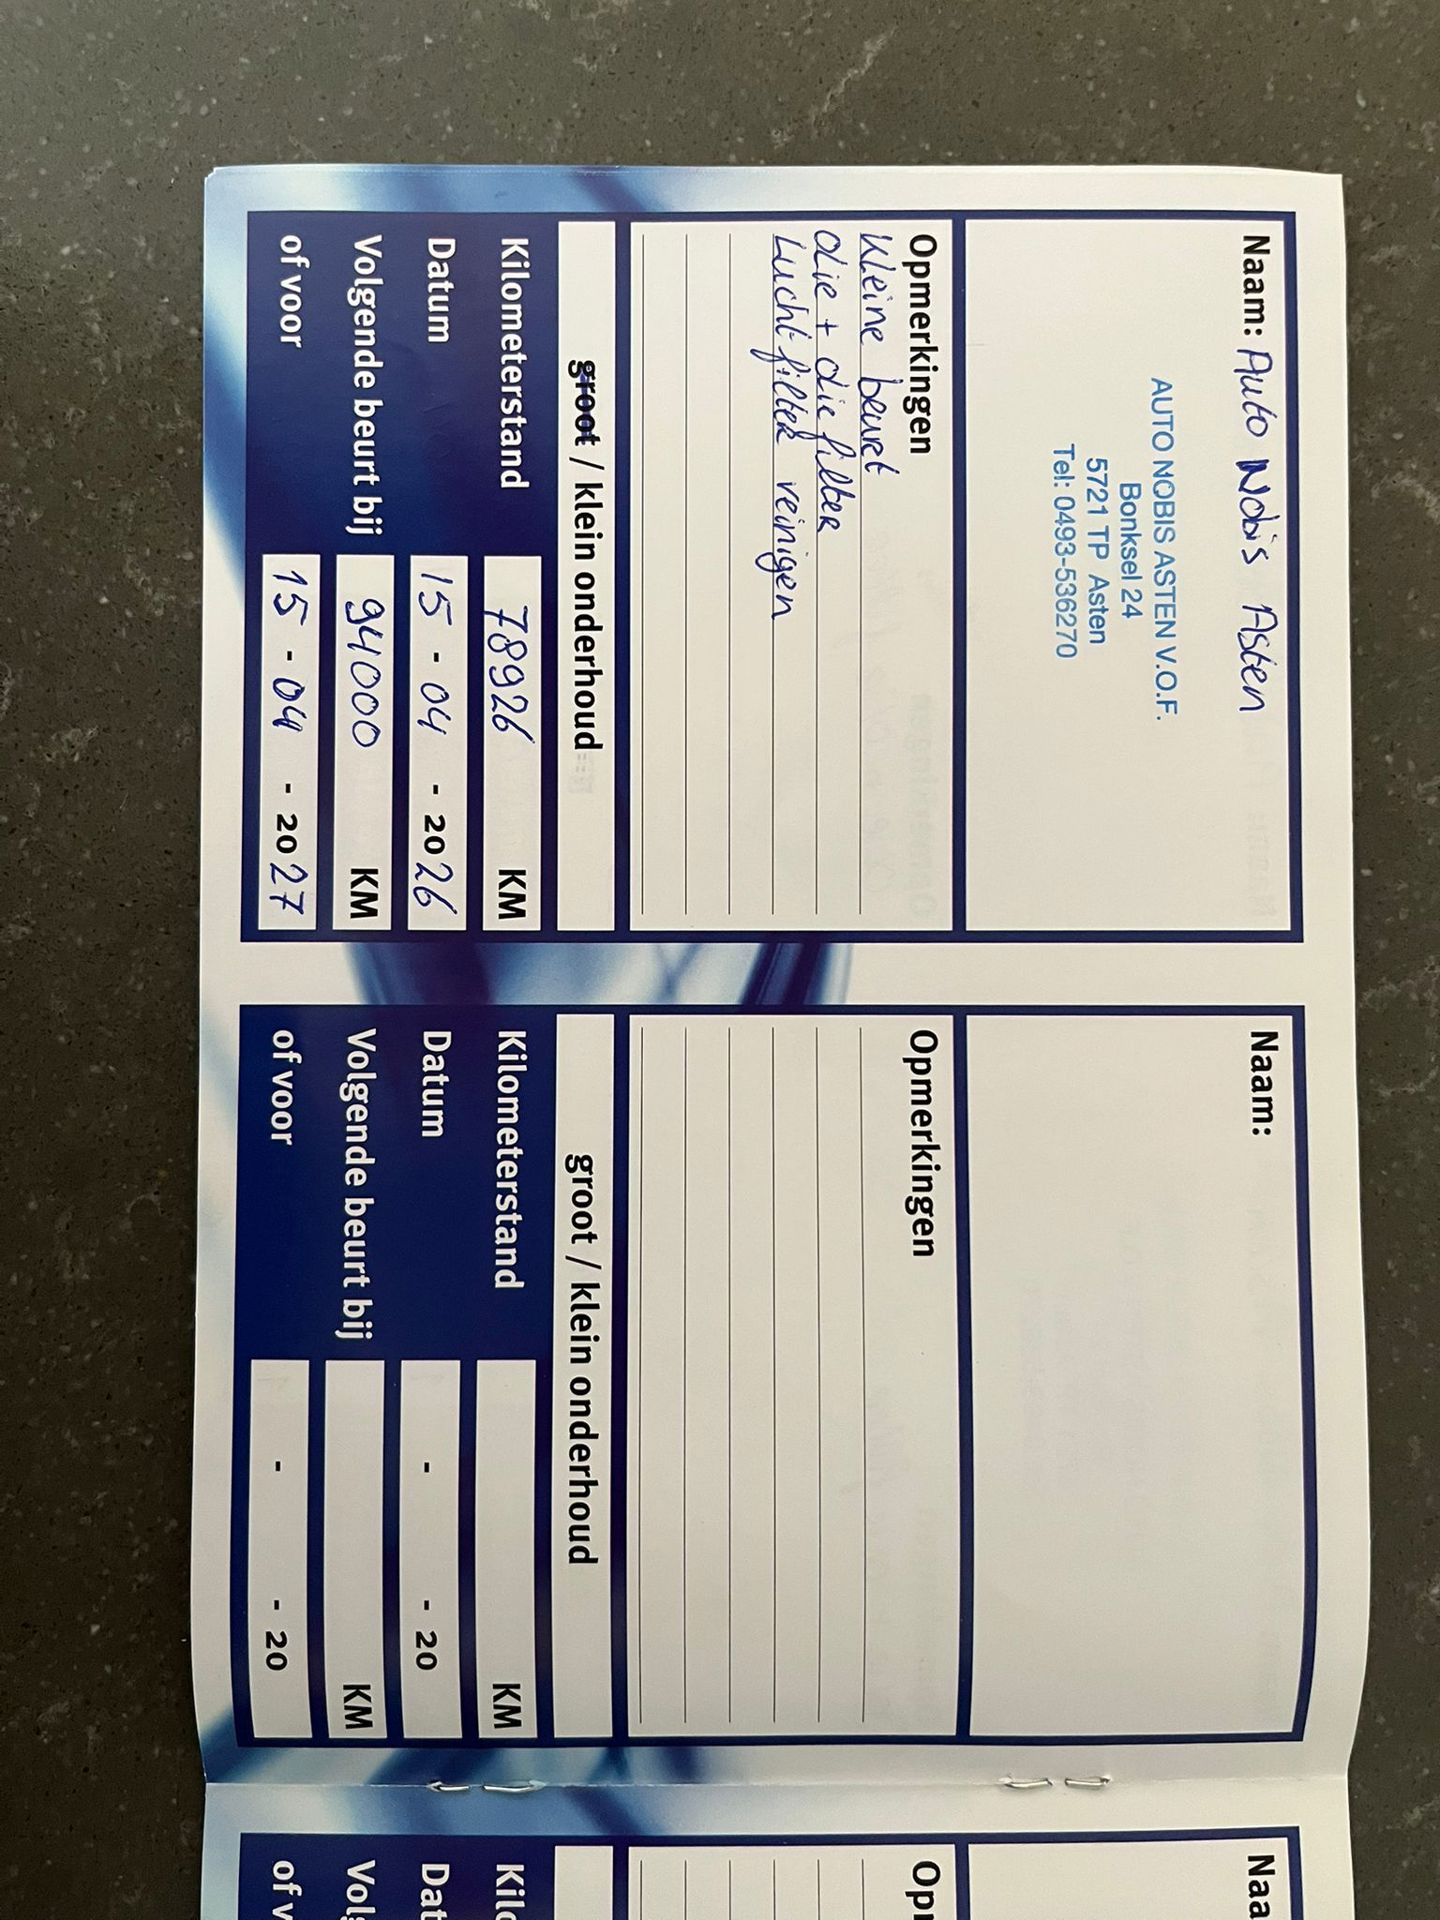 Naam: Auto Nobis Asten
AUTO NOBIS ASTEN V.O.F.
Bonksel 24
5721 TP Asten
Tel: 0493-536270
Opmerkingen
Kleine beurt
Olie + olie filter
Lucht filter reinigen
groot / klein onderhoud
Kilometerstand 78926 KM
Datum 15 - 04 - 2026
Volgende beurt bij 94000 KM
of voor 15 - 04 - 2027
Naam:
Opmerkingen
groot / klein onderhoud
Kilometerstand KM
Datum - - 20
Volgende beurt bij KM
of voor - - 20
Naa
Opr
Kilo
Dat
Vol
of v